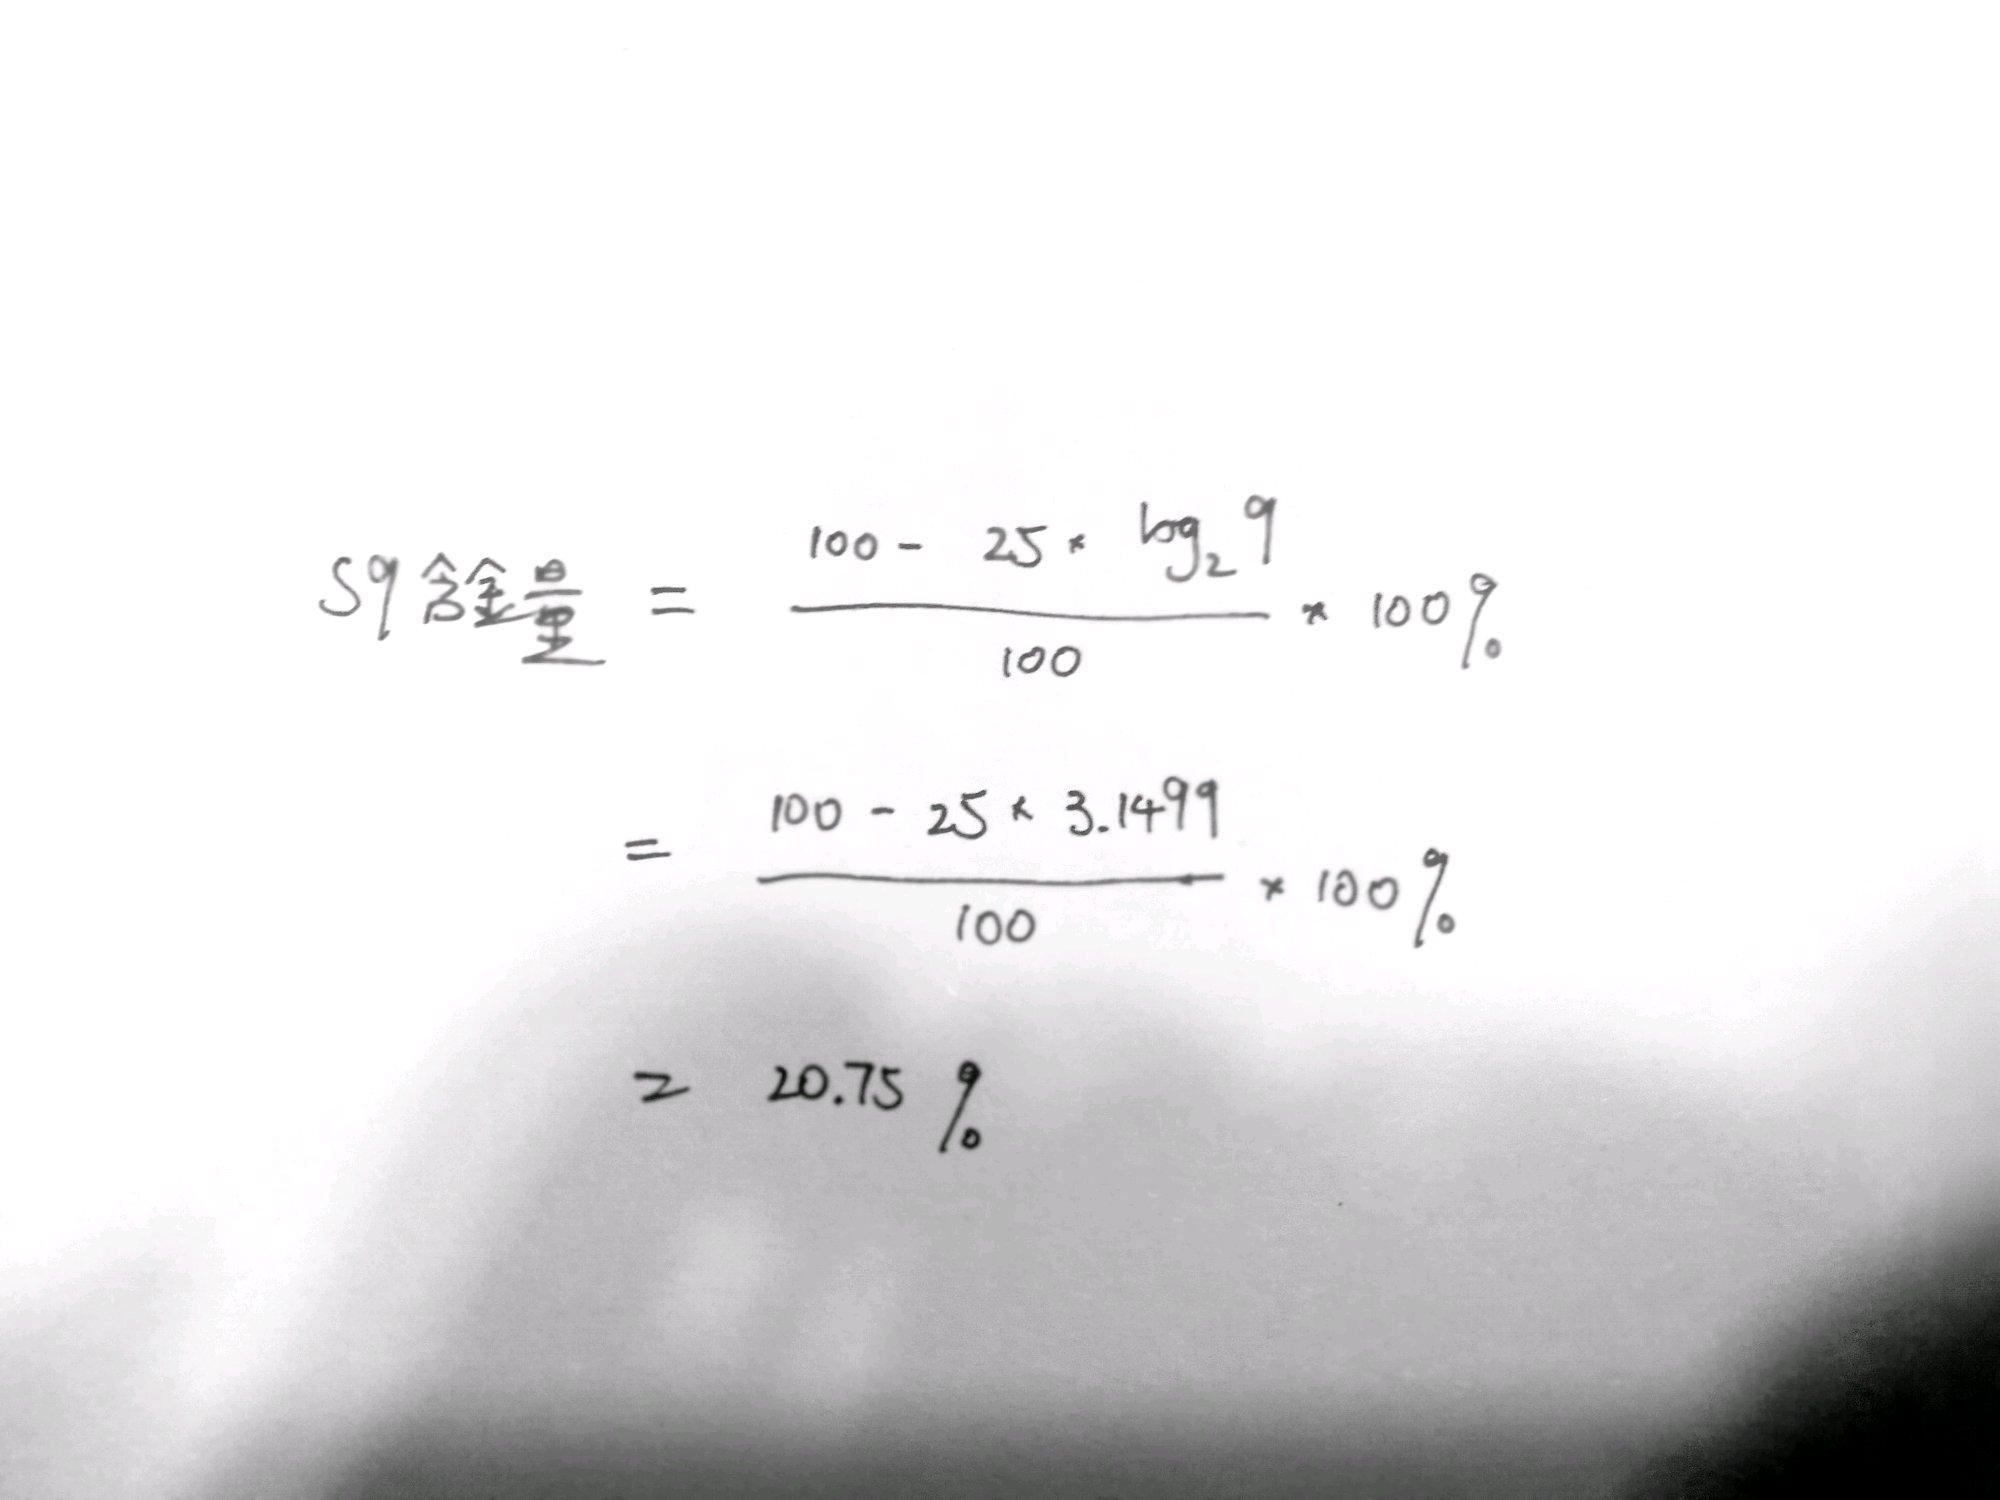 S9含金量 = (100 - 25 * log₂9) / 100 * 100%
= (100 - 25 * 3.1499) / 100 * 100%
= 20.75%